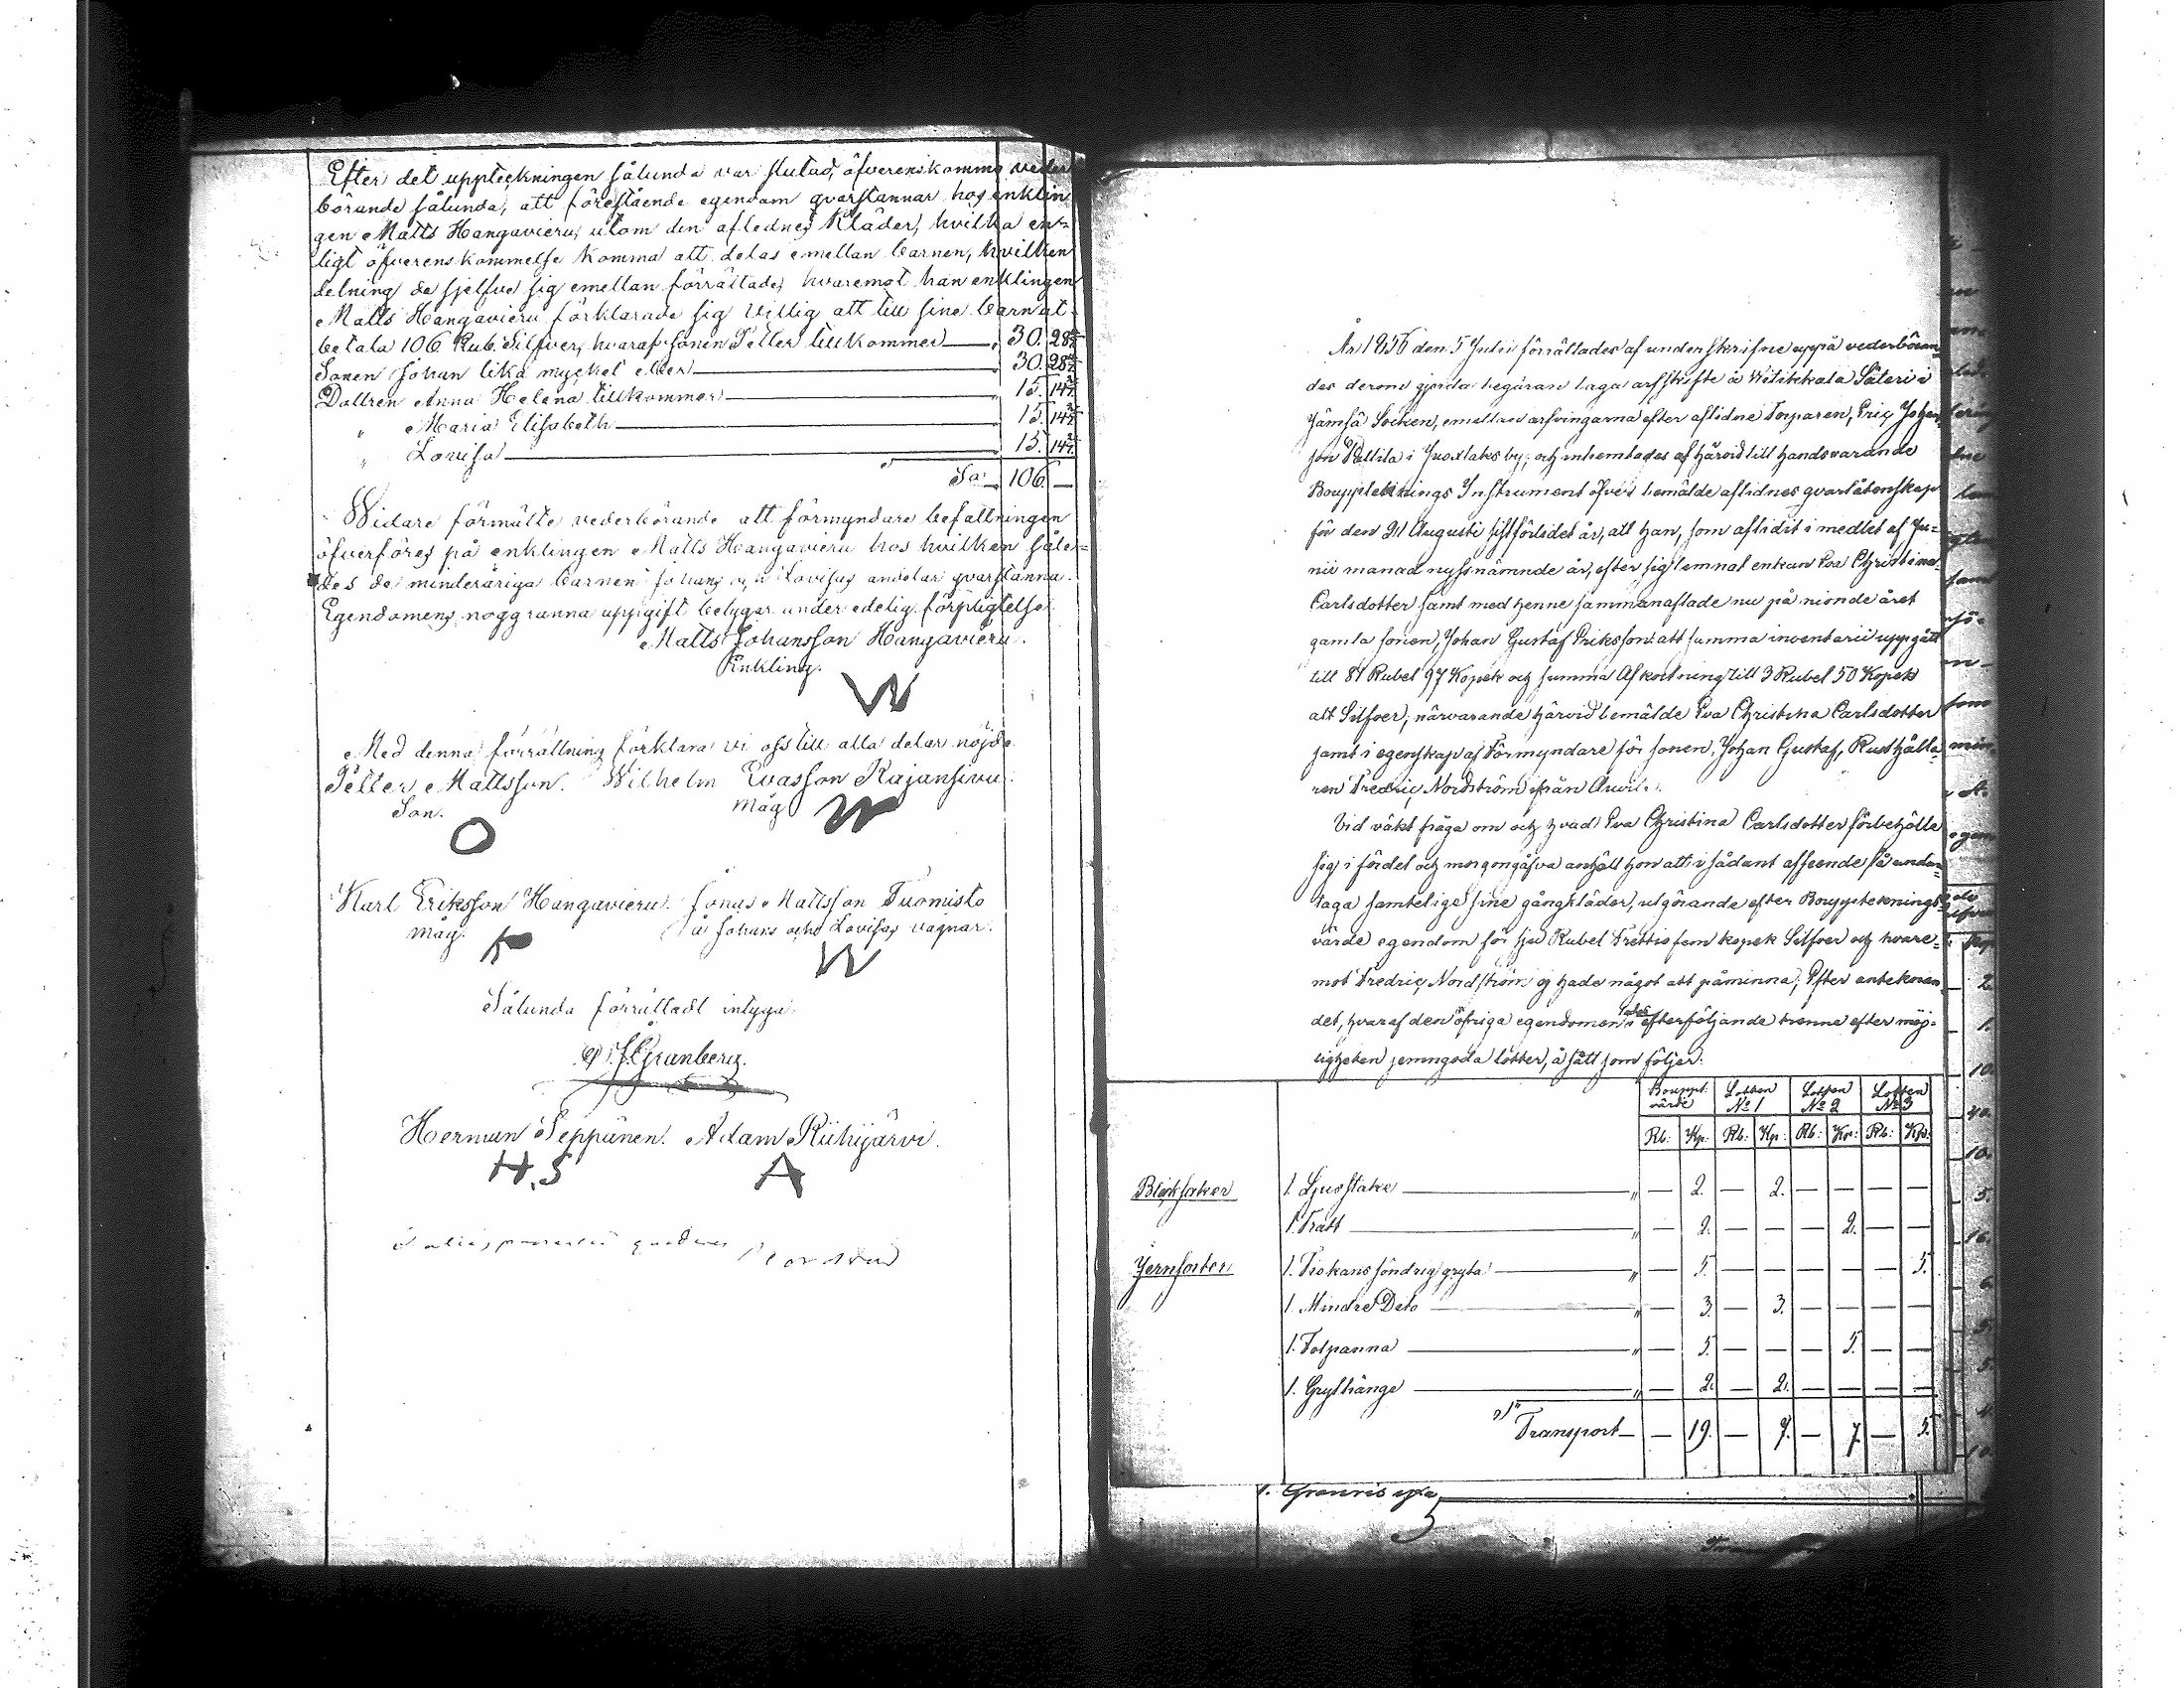 Efter det uppteckningen sålunda var slutad, öfverenskommo veder
börande sålunda, att förestående egendom qvarstannar hos enklin
gen Matts Hangavieru, utom den aflednes Kläder, hvilka en=
ligt öfverenskommelse komma att delas emellan barnen, hvilken
delning de sjelfve sig emellan förrättade, hvaremot han enklingen
Matts Hangavieru förklarade sig villig att till sine barn ut
betala 106 Rub. Silfver, hvaraf sonen Petter tillkommer 30. 28 4/7
Sonen Johan lika mycket eller 30. 28 4/7
Dottren Anna Helena tillkommer 15. 14 2/7
" Maria Elisabeth 15. 14 2/7
" Lovisa 15. 14 2/7
Sa 106. —
Widare förmälte vederbörande att förmyndare befattningen
öfverföres på enklingen Matts Hangavieru hos hvilken såle=
des de minderåriga barnen Johans och Lovisas andelar qvarstanna.
Egendomens noggranna uppgift betygar under edelig förpligtelse
Matts Johansson Hangavieru.
Enkling.
W
Med denna förrättning förklara vi oss till alla delar nöjde
Petter Mattsson. Wilhelm Evasson Kajansivu.
Son. Måg
O W
Karl Eriksson Hangavieru. Jonas Mattsson Tuomisto
Måg. å Johans och Lovisas vägnar.
Sålunda förrättadt intyga.
J. Granberg.
Herman Seppänen. Adam Riihijärvi.
H.S A
År 1856 den 5 Julii förrättades af underskrifne uppå vederböran=
des derom gjorda begäran laga arfskifte å Witikkala Säteri i
Jämsä Socken, emellan arfvingarna efter aflidne Torparen, Eric Johan
son Pältilä i Juoxlaks by; och inhemtades af härvid till handsvarande
Boupptecknings Instrument öfver bemälde aflidnes qvarlåtenskap
för den 21 Augusti sistförlidet år, att han, som aflidit i medlet af Ju=
nii månad nyssnämnde år, efter sig lemnat enkan Eva Christina
Carlsdotter samt med henne sammanaflade nu på nionde året
gamla sonen, Johan Gustaf Eriksson: att summa inventarii uppgått
till 81 Rubel 97 Kopek och summa Afkortning till 3 Rubel 50 Kopek
allt Silfver; närvarande härvid bemälde Eva Christina Carlsdotter
samt i egenskap af Förmyndare för sonen, Johan Gustaf, Rusthålla
ren Fredric Nordström från
Vid väkt fråga om och hvad Eva Christina Carlsdotter förbehölle
sig i fördel och morgongåfva anhöll hon att i sådant afseende få undan
taga samtelige sine gångkläder, utgörande efter Boupptecknings
värde egendom för sju Rubel Trettiofem kopek Silfver och hvare=
mot Fredric Nordström ej hade något att påminna; Efter antecknan
det, hvaraf den öfriga egendomen i efterföljande trenne efter möj=
ligheten jemngoda lotter, å sätt som följer:
Bouppt. värde Lotten No 1 Lotten No 2 Lotten No 3
Rb: Kp: Rb: Kp: Rb: Kp: Rb: Kp:
Bleksaker 1. Ljusstake " — 2. — 2. — — — —
1. Tratt " — 2. — — — 2. — —
Jernsaker 1. Trekans söndrig gryta " — 5. — — — — — 5.
1. Mindre Dito " — 3. — 3. — — — —
1. Folpanna " — 5. — — — 5. — —
1. Grythänge " — 2. — 2. — — — —
Transport — 19. — 7. — 7. — 5.